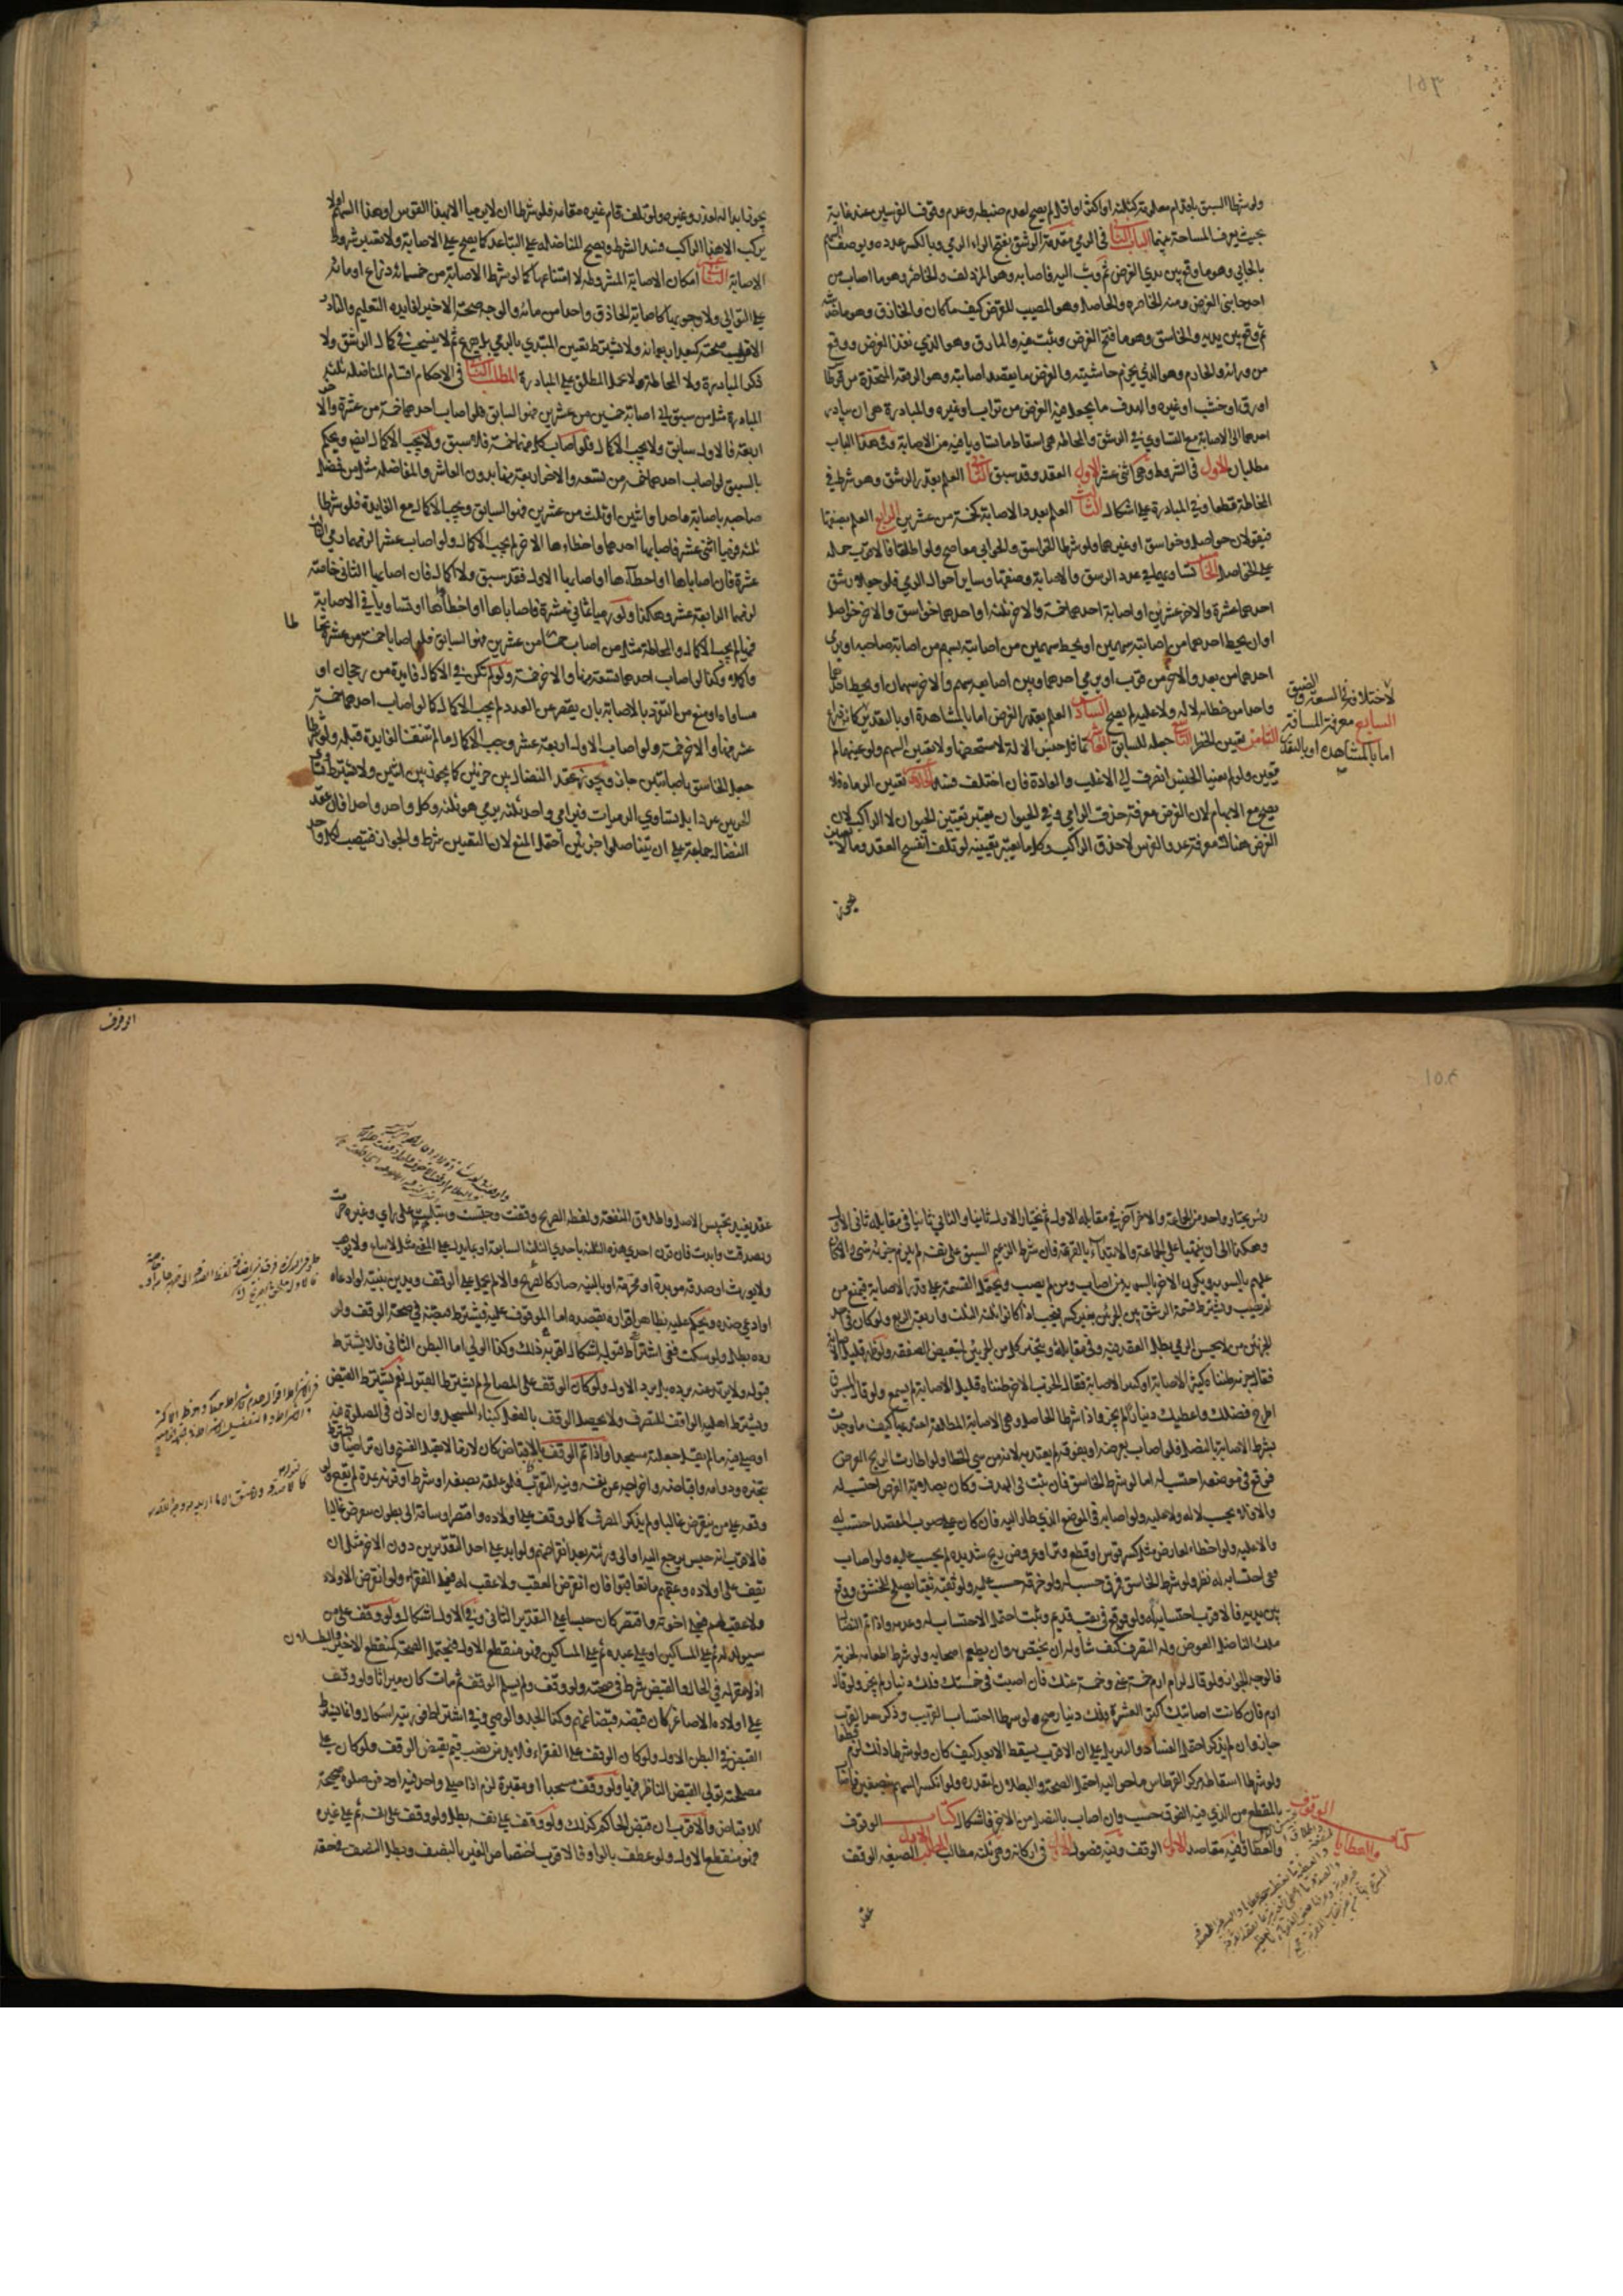 ولو شرطا السبق باقدام معلومة كثلثة او اكثر او اقل لم يصح لعدم ضبطه وعدم وقوف الفرسين عند غاية
بحيث يعرف المساحة بينهما الباب الثاني في الرمي مقدمة الرشق بفتح الراء الرمي وبالكسر عدده ويوصف السهم
بالحابي وهو ما وقع بين يدي الغرض ثم وثب اليه فاصابه وهو المزدلف والخاطر وهو ما اصاب من
احد جانبي الغرض ومنه الخاصره والخاصل وهو المصيب للغرض كيف ما كان والخازق وهو ما خدشه
ثم وقع بين يديه والخاسق وهو ما فتح الغرض وثبت فيه والمارق وهو الذي نفذ الغرض ووقع
من ورائه والخارم وهو الذي يخرم حاشيته والغرض ما يقصد اصابته وهو الرقعة المتخذة من قرطاس
او رق او خشب او غيره والهدف ما يجعل فيه الغرض من تراب او غيره والمبادرة هي ان يبادر
احدهما الى الاصابة مع التساوي في الرشق والمحاطة هي اسقاط ما تساويا فيه من الاصابة وفي هذا الباب
مطلبان الاول في الشروط وهي اثنى عشر الاول العقد وقد سبق الثاني العلم بعدد الرشق وهو شرط في
المحاطة قطعا وفي المبادرة على اشكال الثالث العلم بعدد الاصابة كخمسة من عشرين الرابع العلم بصفتها
فيقولان حواصل او خواسق او غيرهما ولو شرطا الخواسق والحوابي معا صح ولو اطلقا فالاقرب حمله
على الخواصل الخامس تساويهما في عدد الرشق والاصابة وصفتها وساير احوال الرمي فلو جعلا رشق
احدهما عشرة والاخر عشرين او اصابة احدهما خمسة والاخر ثلثة او احدهما خواسق والاخر خواصل
او ان يحط احدهما من اصابته سهمين او يحط سهمين من اصابته بسهم من اصابة صاحبه او يرمي
احدهما من بعد والاخر من قرب او يرمي احدهما وبين اصابعه سهم والاخر سهمان او يحط احدهما
واحدا من خطائه لا له ولا عليه لم يصح السادس العلم بقدر الغرض اما بالمشاهدة او بالتقدير
لاختلافه في السعة والضيق
السابع معرفة المسافة
اما بالمشاهدة او بالتقدير
الثامن تعيين الخطر التاسع جعله للسابق العاشر تماثل جنس الالة لا شخصها ولا تعيين السهم ولو عينهما لم
يتعين ولو لم يعينا الجنس انصرف الى الاغلب في العادة فان اختلف فسد الحادي تعيين الرماة فلا
يصح مع الابهام لان الغرض معرفة حذق الرامي وفي الحيوان يعتبر تعيين الحيوان لا الراكب لان
الغرض هناك معرفة عدو الفرس لا حذق الراكب وكل ما يعتبر تعيينه لو تلف انفسخ العقد وما لا يتعين
يجوز
يجوز ابداله لعذر وغيره ولو تلف قام غيره مقامه فلو شرطا ان لا يرميا الا بهذا القوس او هذا السهم او لا
يركب الا هذا الراكب فسد الشرط ويصح المناضلة على التباعد كما يصح على الاصابة ولا يعتبر شروط
الاصابة الثاني عشر امكان الاصابة المشروطة لا امتناعها كما لو شرط الاصابة من خمسمائة ذراع او مائة
على التوالي ولا وجوبها كاصابة الحاذق واحدا من مائة والوجه صحة الاخير لفايدة التعليم والنادر
الاقرب صحته كبعد اربعمائة ولا يشترط تعيين المبتدي بالرمي بل يقرع ثم لا ينسحب في كل الرشق ولا
ذكر المبادرة ولا المحاطة ولا يحمل المطلق على المبادرة المطلب الثاني في الاحكام اقسام المناضلة ثلثة
المبادرة مثل من سبق الى اصابة خمسين من عشرين فهو السابق فلو اصاب احدهما خمسة من عشرة والاخر
اربعة فالاول سابق ولا يجب الاكمال ولو اصاب كل منهما خمسة فلا سبق ولا يجب الاكمال
بالسبق لو اصاب احدهما خمسة من تسعة والاخر اربعة منها بدون العاشر والمفاضلة مثل من فضل
صاحبه باصابة واحد او اثنين او ثلث من عشرين فهو السابق ويجب الاكمال مع الفايدة فلو شرطا
ثلثة فرميا اثنى عشر فاصابها احدهما واخطاءها الاخر لم يجب الاكمال ولو اصاب عشرا لزمهما رمي الثالثة
عشرة فان اصاباها او اخطآها او اصابها الاول فقد سبق ولا اكمال فان اصابها الثاني خاصة
لزمهما الرابعة عشر وهكذا ولو رميا ثماني عشرة فاصاباها او اخطآها او تساويا في الاصابة
فيها لم يجب الاكمال والمحاطة مثل من اصاب خمسا من عشرين فهو السابق فلو اصابا خمسة من عشرة تحاطا
واكملا وكذا لو اصاب احدهما تسعة منها والاخر خمسة ولو لم تكن في الاكمال فايدة من رجحان او
مساواة او منع من التفرد بالاصابة بان يقصر عن العدد لم يجب الاكمال كما لو اصاب احدهما خمسة
عشر منها والاخر خمسة ولو اصاب الاول اربعة عشر وجب الاكمال ما لم تنتف الفايدة قبله ولو شرطا
جعل الخاسق باصابتين جاز ويجوز عقد النضال بين حزبين كما يجوز بين اثنين ولا يشترط تساوي
الحزبين عددا بل تساوي الرميات فيرامي واحد ثلثة يرمي هو ثلثة وكل واحد واحدا فان عقد
النضال جماعة على ان يتناضلوا حزبين احتمل المنع لان التعيين شرط والجواز فينصب لكل واحد
رئيس يختار واحد من الجماعة والاخر آخر في مقابلة الاول ثم يختار الاول ثانيا والثاني ثانيا في مقابلة ثاني الاول
وهكذا الى ان ينتهيا على الجماعة والابتداء بالقرعة فان شرط الزعيم السبق على نفسه لم يلزم حزبه شيء والا كان
عليهم بالسوية ويكون للاخر بالسوية من اصاب ومن لم يصب ويحتمل القسمة على قدر الاصابة فيمنع من
لم يصب ويشترط قسمة الرشق بين الحزبين بغير كسر فيجب اذا كانوا ثلثة الثلث واربعة الربع ولو كان في احد
الحزبين من لا يحسن الرمي بطل العقد فيه وفي مقابله ويتخير كل من الحزبين لتبعيض الصفقة ولو كان قليل الاصابة
فقال حزبه ظنناه كثير الاصابة او كسه الاصابة فقال الحزب الاخر ظنناه قليل الاصابة لم يسمع ولو قال المسبوق
اطرح فضلك واعطيك دينارا لم يجز واذا شرطا الخاصل وهي الاصابة المطلقة اعتد بها كيف ما وجدت
بشرط الاصابة بالنصل فلو اصاب بعرضه او بفوقه لم يعتد به لانه من سيئ الخطا ولو اطارت الريح الغرض
فوقع في موضعه احتسب له اما لو شرط الخاسق فان ثبت في الهدف وكان بصلابة الغرض احتسب له
والا فلا يحسب لا له ولا عليه ولو اصابه في الموضع الذي طار اليه فان كان على صوب المقصد احتسب له
والا عليه ولو اخطا لعارض مثل كسر قوس او قطع وتر او عروض ريح شديدة لم يحسب عليه ولو اصاب
ففي احتسابه له نظر ولو شرط الخاسق فمرق حسب له ولو خرقه حسب عليه ولو ثقبه ثقبا يصلح للخسق ووقع
بين يديه فالاقرب احتسابه له ولو وقع في ثقب قديم وثبت احتمل الاحتساب له وعدمه واذا تم النضال
ملك الناضل العوض وله التصرف كيف شاء وله ان يختص به وان يطعم اصحابه ولو شرط اطعامه لحزبه
فالوجه الجواز ولو قال لرام ارم خمسة عني وخمسة عنك فان اصبت في خمستك فلك دينار لم يجز ولو قال
ارم فان كانت اصابتك اكثر العشرة فلك دينار صح ولو شرطا احتساب القريب وذكر حد القرب
جاز وان لم يذكر احتمل الفساد والتنزيل على ان الاقرب يسقط الابعد كيف كان ولو شرطا ذلك لزم قطعا
ولو شرطا اسقاط مركز القرطاس ما حواليه احتمل الصحة والبطلان لتعذره ولو انكسر السهم بنصفين فاصاب
بالمقطع من الذي فيه الفوق حسب وان اصاب بالنصل من الاخر فاشكال كتاب الوقوف
والعطايا وفيه مقاصد الاول الوقف وفيه فصول الاول في اركانه وهي ثلثة مطالب المطلب الاول الصيغة الوقف
كتاب الوقوف والعطايا
عقد
الوقوف
عقد يفيد تحبيس الاصل واطلاق المنفعة ولفظه الصريح وقفت وحبست وسبلت على راي وغيره حرمت
وتصدقت وابدت فان قرن احدى هذه الثلثة باحدى الثلث السابقة او بما يدل على المعنى مثل لا يباع ولا يوهب
ولا يورث او صدقة موبدة او محرمة او بالنية صار كالصريح والا لم يحمل على الوقف ويدين بنيته لو ادعاه
او ادعى ضده ويحكم عليه بظاهر اقراره بقصده اما الموقوف عليه فيشترط معينه في صحة الوقف ولو
رده بطل ولو سكت ففي اشتراط قبوله اشكال اقربه ذلك وكذا الولي اما البطن الثاني فلا يشترط
قبوله ولا يرتد عنه برده بل برد الاول ولو كان الوقف على المصالح لم يشترط القبول نعم يشترط القبض
ويشترط اهلية الواقف للتصرف ولا يحصل الوقف بالفعل كبناء المسجد وان اذن في الصلوة فيه
او صلى فيه ما لم يقل جعلته مسجدا واذا تم الوقف بالاقباض كان لازما لا يقبل الفسخ وان تراضيا ويشترط
تنجيزه ودوامه واقباضه واخراجه عن نفسه ونية التقرب فلو علقه بصفة او شرط او قرنه بمدة لم يقع ولو
وقفه على من ينقرض غالبا ولم يذكر المصرف كما لو وقف على اولاده واقتصر او ساقه الى بطون تنقرض غالبا
فالاقرب انه حبس يرجع اليه او الى ورثته بعد انقراضهم ولو ابد على احد التقديرين دون الاخر مثل ان
يقف على اولاده وعقبهم ما تعاقبوا فان انقرض العقب ولا عقب له فعلى الفقراء ولو انقرض الاولاد
ولا عقب لهم فعلى اخوته واقتصر كان حبسا على التقدير الثاني وفي الاول اشكال ولو وقف على من
سيولد له ثم على المساكين او على عبده ثم على المساكين فهو منقطع الاول فيحتمل الصحة كمنقطع الاخير والبطلان
اذ لا مقر له في الحال والقبض شرط في صحته ولو وقف ولم يسلم الوقف ثم مات كان ميراثا ولو وقف
على اولاده الاصاغر كان قبضه قبضا عنهم وكذا الجد والوصي وفي اشتراط فوريته اشكال وانما يشترط
القبض في البطن الاول ولو كان الوقف على الفقراء فلا بد من نصب قيم يقبض الوقف ولو كان على
مصلحة تولى القبض الناظر فيها ولو وقف مسجدا او مقبرة لزم اذا صلى واحد فيه او دفن صلوة صحيحة
للاقباض والاقرب ان قبض الحاكم كذلك ولو وقف على نفسه بطل ولو وقف على نفسه ثم على غيره
فهو منقطع الاول ولو عطف بالواو فالاقرب اختصاص الغير بالنصف وبطل النصف في حقه